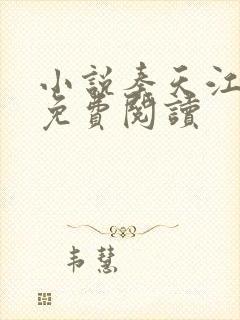 小説奉天江
免費閱讀
韦慧